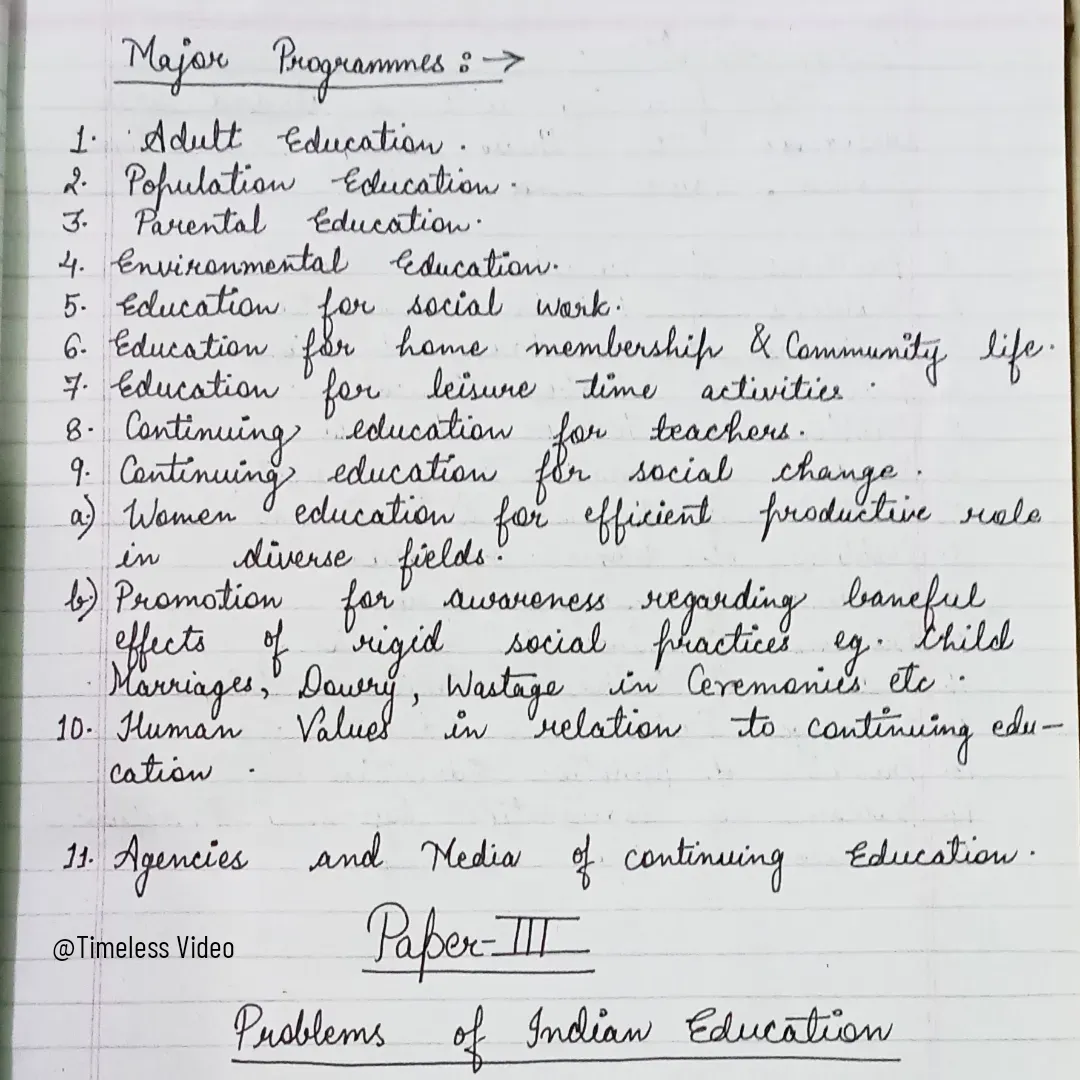 Major Programmes : →
1. Adult Education.
2. Population Education.
3. Parental Education.
4. Environmental Education.
5. Education for social work.
6. Education for home membership & Community life.
7. Education for leisure time activities.
8. Continuing education for teachers.
9. Continuing education for social change.
a) Women education for efficient productive role
in diverse fields.
b) Promotion for awareness regarding baneful
effects of rigid social practices eg. Child
Marriages, Dowry, Wastage in Ceremonies etc.
10. Human Values in relation to continuing edu-
cation.
11. Agencies and Media of continuing Education.
@Timeless Video
Paper-III
Problems of Indian Education